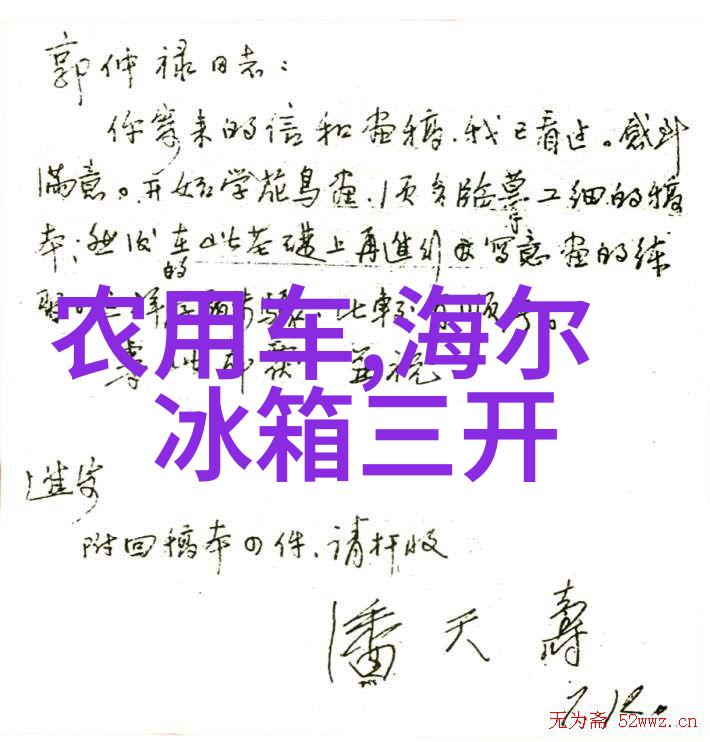 郭仲禄同志：
你寄来的信和画稿，我已看过。感到
满意。开始学花鸟画，须多临摹工细的稿
本；然后在此基础上再进行写意画的练
习。这样的
农用车,海尔
冰箱三开
专此即颂
进安
附回稿本四件、请检收
潘天寿
7.12.
无为斋 52wwz.cn